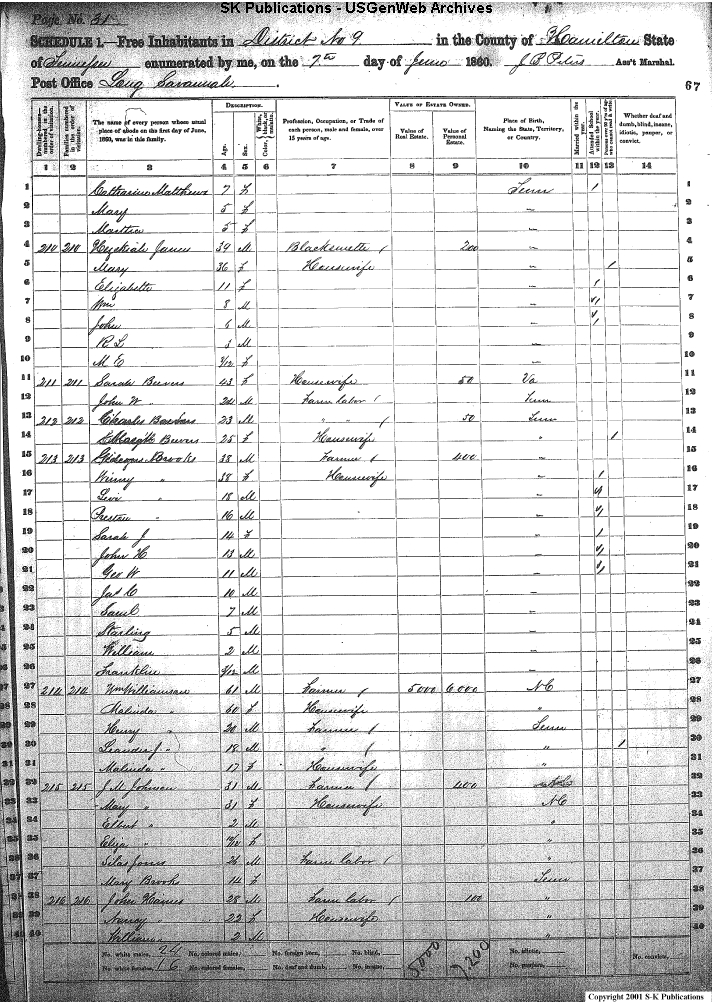 SK Publications - USGenWeb Archives
Page No. 31
SCHEDULE 1.—Free Inhabitants in District No 9 in the County of Hamilton State
of Tennessee enumerated by me, on the 7th day of June 1860. J P Peters Ass't Marshal.
Post Office Long Savannah.
67
DESCRIPTION. VALUE OF ESTATE OWNED.
Dwelling-houses numbered in the order of visitation. Families numbered in the order of visitation. The name of every person whose usual place of abode on the first day of June, 1860, was in this family. Age. Sex. Color, Profession, Occupation, or Trade of each person, male and female, over 15 years of age. Value of Real Estate. Value of Personal Estate. Place of Birth, Naming the State, Territory, or Country. Married within the year. Attended School within the year. Whether deaf and dumb, blind, insane, idiotic, pauper, or convict.
1 2 3 4 5 6 7 8 9 10 11 12 13 14
1 Catharine Matthews 7 F Tenn / 1
2 Mary 5 F " 2
3 Martha 5 F " 3
4 210 210 Hezekiah James 39 M Blacksmith 200 " 4
5 Mary 36 F Housewife " / 5
6 Elizabeth 11 F " / 6
7 Wm 8 M " / 7
8 John 6 M " / 8
9 R L 3 M " 9
10 M E F " 10
11 211 211 Sarah Beevers 43 F Housewife 50 Va 11
12 John W " 24 M Farm labor Tenn 12
13 212 212 Charles 23 M " " 50 Tenn 13
14 Beevers 25 F Housewife " / 14
15 213 213 Gideon Brooks 38 M Farmer 400 " 15
16 Winny " 38 F Housewife " / 16
17 Levi " 18 M " / 17
18 Preston " 16 M " / 18
19 Sarah J 14 F " / 19
20 John H 13 M " / 20
21 Geo W 11 M " / 21
22 Jas C 10 M " 22
23 Saml 7 M " 23
24 Starling 5 M " 24
25 William 2 M " 25
26 Franklin 9/12 M " 26
27 214 214 Wm Williamson 61 M Farmer 5000 6000 NC 27
28 Malinda " 60 F Housewife " 28
29 Henry " 20 M Farmer Tenn 29
30 Leander J " 18 M " " / 30
31 Malinda " 17 F Housewife " 31
32 215 215 J. M. Johnson 31 M Farmer 400 32
33 Mary " 31 F Housewife NC 33
34 Elbert " 2 M " 34
35 Eliza " F " 35
36 Silas Jones 26 M Farm labor " 36
37 Mary Brooks 14 F Tenn 37
38 216 216 John Hames 28 M Farm labor 100 " 38
39 Nancy " 22 F Housewife " 39
40 William " 2 M " 40
No. white males, 24 No. colored males, No. foreign born, No. blind, 5,000 7,200 No. idiotic, No. convicts,
No. white females, 16 No. colored females, No. deaf and dumb, No. insane, No. paupers,
Copyright 2001 S-K Publications